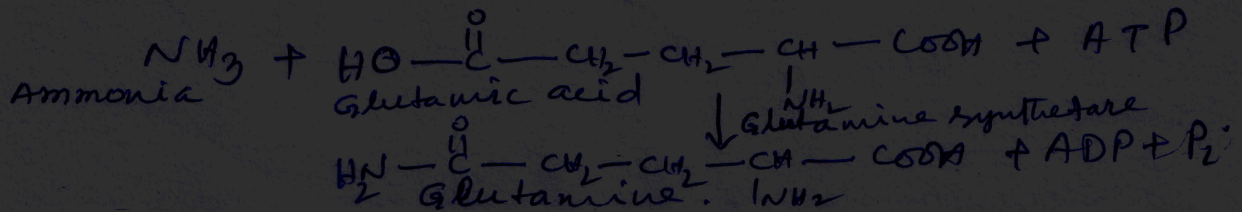 O
NH3 + HO—C—CH2—CH2—CH—COOH + ATP
Ammonia Glutamic acid NH2
Glutamine synthetase
O
H2N—C—CH2—CH2—CH—COOH + ADP + Pi
Glutamine. NH2